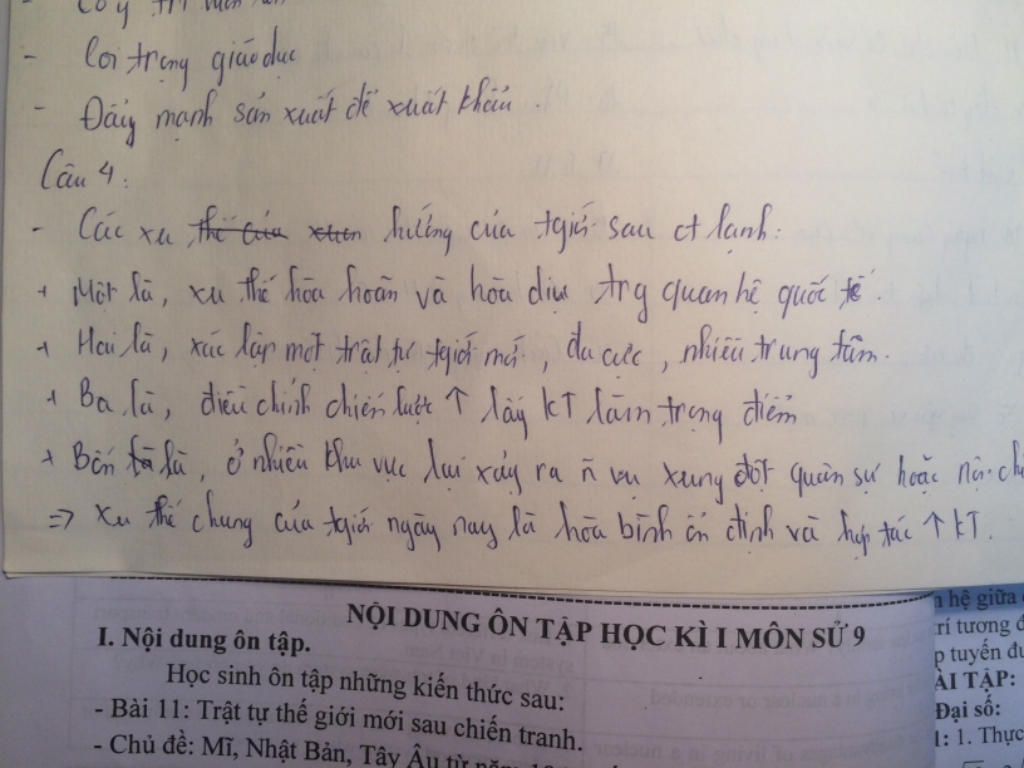 - Có ý trí vươn lên
- Coi trọng giáo dục
- Đẩy mạnh sản xuất để xuất khẩu.
Câu 4:
- Các xu thế của xuen hướng của tgiới sau ct lạnh:
+ Một là, xu thế hòa hoãn và hòa dịu trg quan hệ quốc tế.
+ Hai là, xác lập một trật tự tgiới mới, đa cực, nhiều trung tâm.
+ Ba là, điều chỉnh chiến lược ↑ lấy KT làm trọng điểm
+ Bốn là, ở nhiều khu vực lại xảy ra ñ vụ xung đột quân sự hoặc nội ch
=> xu thế chung của tgiới ngày nay là hòa bình ổn định và hợp tác ↑ KT.
NỘI DUNG ÔN TẬP HỌC KÌ I MÔN SỬ 9
I. Nội dung ôn tập.
Học sinh ôn tập những kiến thức sau:
- Bài 11: Trật tự thế giới mới sau chiến tranh.
- Chủ đề: Mĩ, Nhật Bản, Tây Âu từ năm
hệ giữa
rí tương
p tuyến
ÀI TẬP:
Đại số:
1: 1. Thực